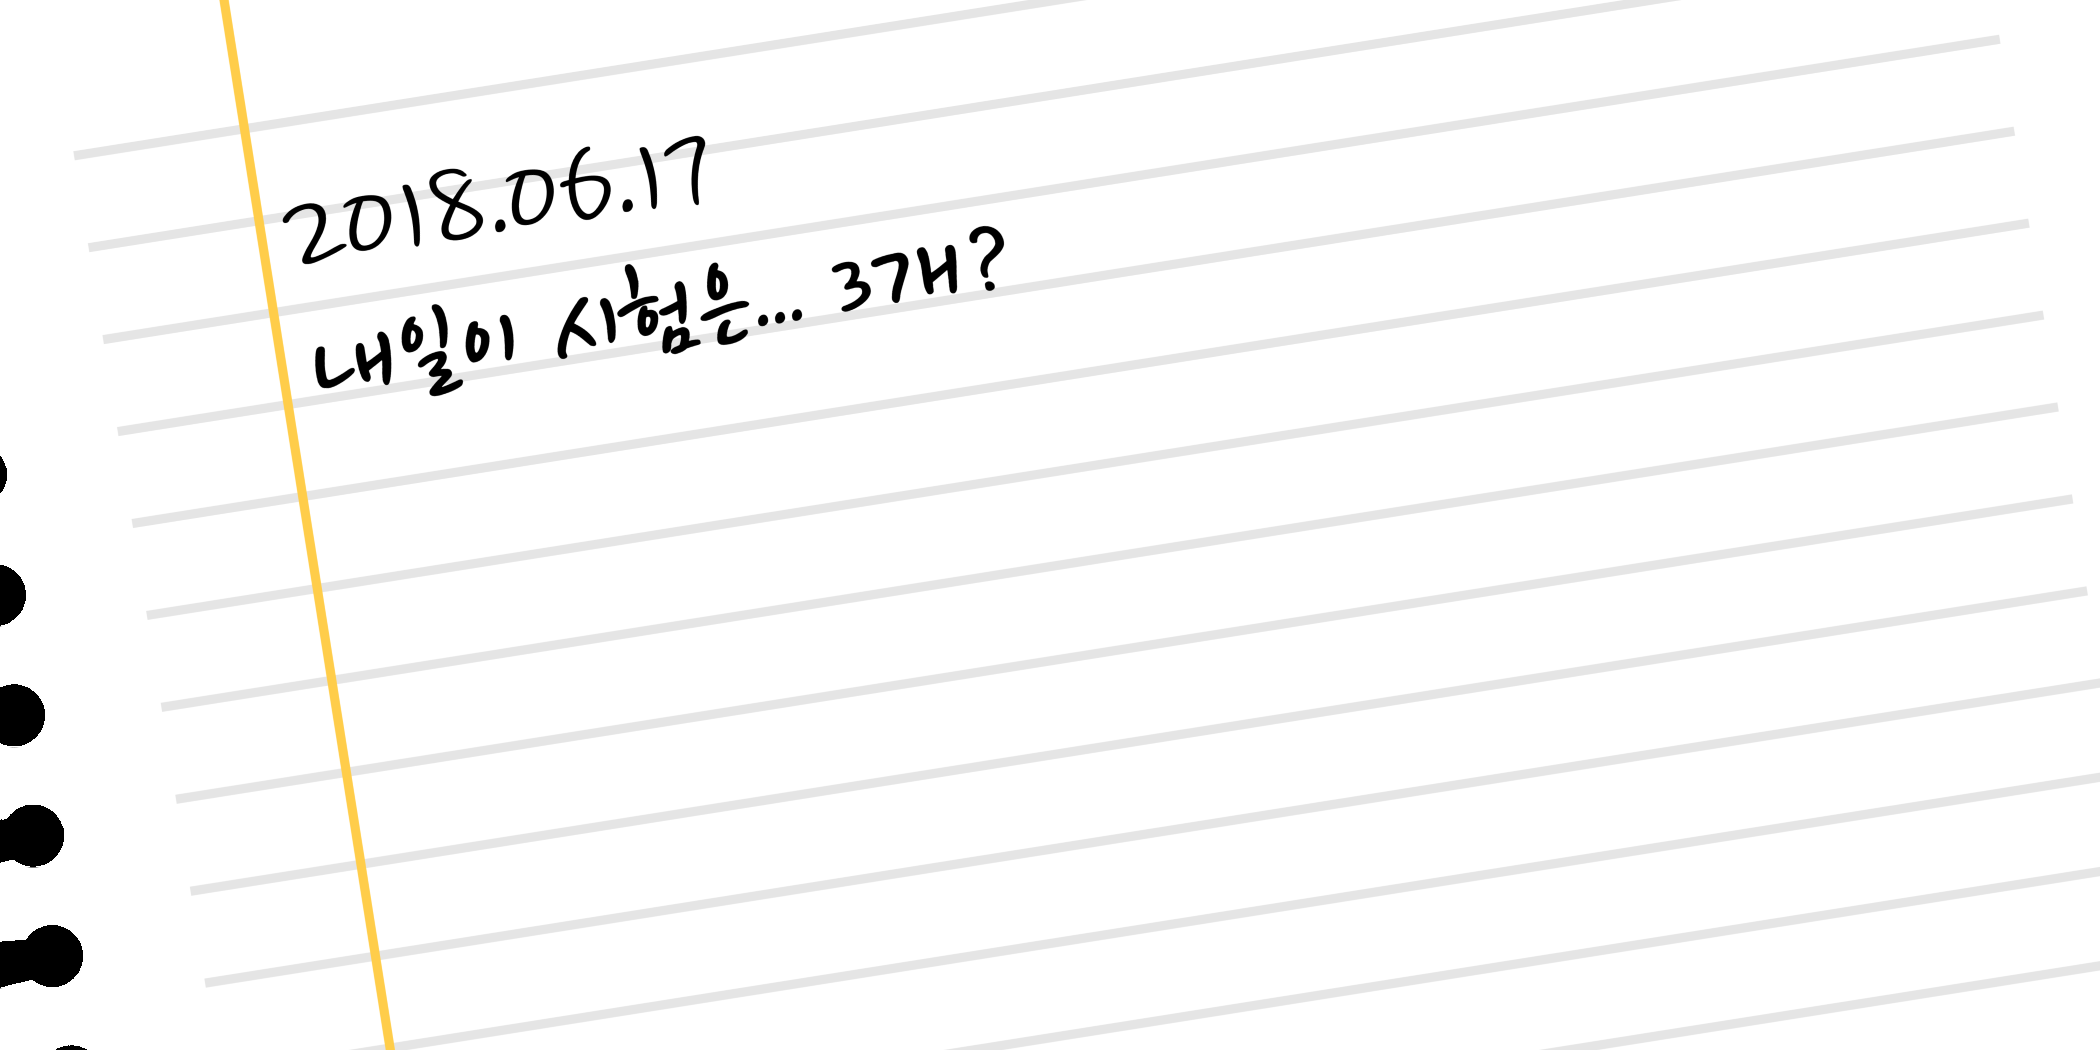 2018.06.17
내일이 시험은... 3개?